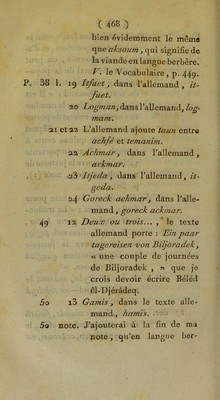 ( 468 )
bien évidemment le même
que aksoum, qui signifie de
la viande en langue berbère.
V. le Vocabulaire, p. 449.
P. 38 l. 19 Isfuet, dans l'allemand, it-
fuet.
20 Logman, dans l'allemand, log-
mam.
21 et 22 L'allemand ajoute taun entre
achfé et temanim.
22 Achmar, dans l'allemand,
ackmar.
23 Itjeda, dans l'allemand, it-
geda.
24 Goreck achmar, dans l'alle-
mand, goreck ackmar.
49 12 Deux ou trois..., le texte
allemand porte : Ein paar
tagereisen von Biljoradek,
« une couple de journées
de Biljoradek, » que je
crois devoir écrire Béléd
êl-Djérâdeq.
50 13 Gamis, dans le texte alle-
mand, hamis.
50 note. J'ajouterai à la fin de ma
note, qu'en langue ber-